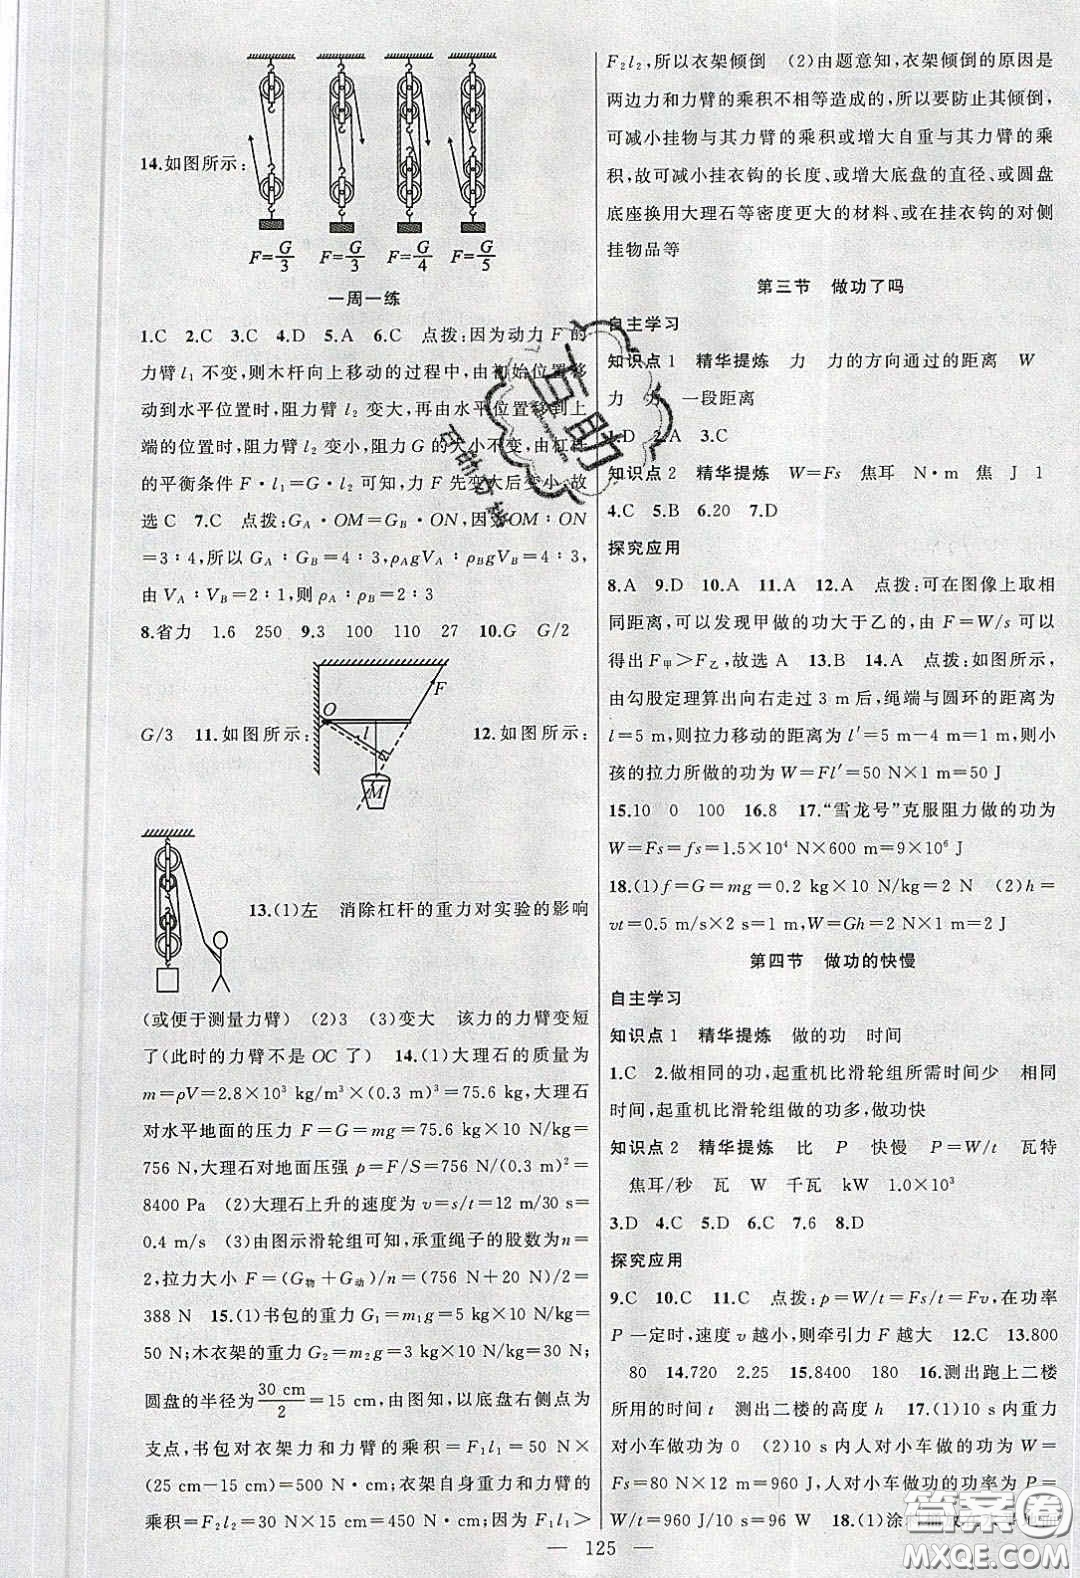 14.如图所示:
F=G/3 F=G/3 F=G/4 F=G/5
一周一练
1.C 2.C 3.C 4.D 5.A 6.C 点拨:因为动力 F 的
力臂 l₁ 不变,则木杆向上移动的过程中,由初始位置移
动到水平位置时,阻力臂 l₂ 变大,再由水平位置移到上
端的位置时,阻力臂 l₂ 变小,阻力 G 的大小不变,由杠杆
的平衡条件 F·l₁=G·l₂ 可知,力 F 先变大后变小,故
选 C 7.C 点拨:G_A·OM=G_B·ON,因 OM∶ON
=3∶4,所以 G_A∶G_B=4∶3,ρ_AgV_A∶ρ_BgV_B=4∶3,
由 V_A∶V_B=2∶1,则 ρ_A∶ρ_B=2∶3
8.省力 1.6 250 9.3 100 110 27 10.G G/2
G/3 11.如图所示: O l F M 12.如图所示:
13.(1)左 消除杠杆的重力对实验的影响
(或便于测量力臂) (2)3 (3)变大 该力的力臂变短
了(此时的力臂不是 OC 了) 14.(1)大理石的质量为
m=ρV=2.8×10³ kg/m³×(0.3m)³=75.6 kg,大理石
对水平地面的压力 F=G=mg=75.6 kg×10 N/kg=
756 N,大理石对地面压强 p=F/S=756 N/(0.3 m)²=
8400 Pa (2)大理石上升的速度为 v=s/t=12 m/30 s=
0.4 m/s (3)由图示滑轮组可知,承重绳子的股数为 n=
2,拉力大小 F=(G物+G动)/n=(756 N+20 N)/2=
388 N 15.(1)书包的重力 G₁=m₁g=5 kg×10 N/kg=
50 N;木衣架的重力 G₂=m₂g=3 kg×10 N/kg=30 N;
圆盘的半径为30 cm/2=15 cm,由图知,以底盘右侧点为
支点,书包对衣架力和力臂的乘积=F₁l₁=50 N×
(25 cm-15 cm)=500 N·cm;衣架自身重力和力臂的
乘积=F₂l₂=30 N×15 cm=450 N·cm;因为 F₁l₁>
F₂l₂,所以衣架倾倒 (2)由题意知,衣架倾倒的原因是
两边力和力臂的乘积不相等造成的,所以要防止其倾倒,
可减小挂物与其力臂的乘积或增大自重与其力臂的乘
积,故可减小挂衣钩的长度、或增大底盘的直径、或圆盘
底座换用大理石等密度更大的材料、或在挂衣钩的对侧
挂物品等
第三节 做功了吗
自主学习
知识点 1 精华提炼 力 力的方向通过的距离 W
力 力 一段距离
1.D 2.A 3.C
知识点 2 精华提炼 W=Fs 焦耳 N·m 焦 J 1
4.C 5.B 6.20 7.D
探究应用
8.A 9.D 10.A 11.A 12.A 点拨:可在图像上取相
同距离,可以发现甲做的功大于乙的,由 F=W/s 可以
得出 F甲>F乙,故选 A 13.B 14.A 点拨:如图所示,
由勾股定理算出向右走过 3 m后,绳端与圆环的距离为
l=5 m,则拉力移动的距离为 l′=5 m-4 m=1 m,则小
孩的拉力所做的功为 W=Fl′=50 N×1 m=50 J
15.10 0 100 16.8 17.“雪龙号”克服阻力做的功为
W=Fs=fs=1.5×10⁴ N×600 m=9×10⁶ J
18.(1)f=G=mg=0.2 kg×10 N/kg=2 N (2)h=
vt=0.5 m/s×2 s=1 m,W=Gh=2 N×1 m=2 J
第四节 做功的快慢
自主学习
知识点 1 精华提炼 做的功 时间
1.C 2.做相同的功,起重机比滑轮组所需时间少 相同
时间,起重机比滑轮组做的功多,做功快
知识点 2 精华提炼 比 P 快慢 P=W/t 瓦特
焦耳/秒 瓦 W 千瓦 kW 1.0×10³
3.D 4.C 5.D 6.C 7.6 8.D
探究应用
9.C 10.C 11.C 点拨:p=W/t=Fs/t=Fv,在功率
P 一定时,速度 v 越小,则牵引力 F 越大 12.C 13.800
80 14.720 2.25 15.8400 180 16.测出跑上二楼
所用的时间 t 测出二楼的高度 h 17.(1)10 s内重力
对小车做功为 0 (2)10 s内人对小车做的功为 W=
Fs=80 N×12 m=960 J,人对小车做功的功率为 P=
W/t=960 J/10 s=96 W 18.(1)涂
— 125 —
互助
答案卷
MXQE.COM